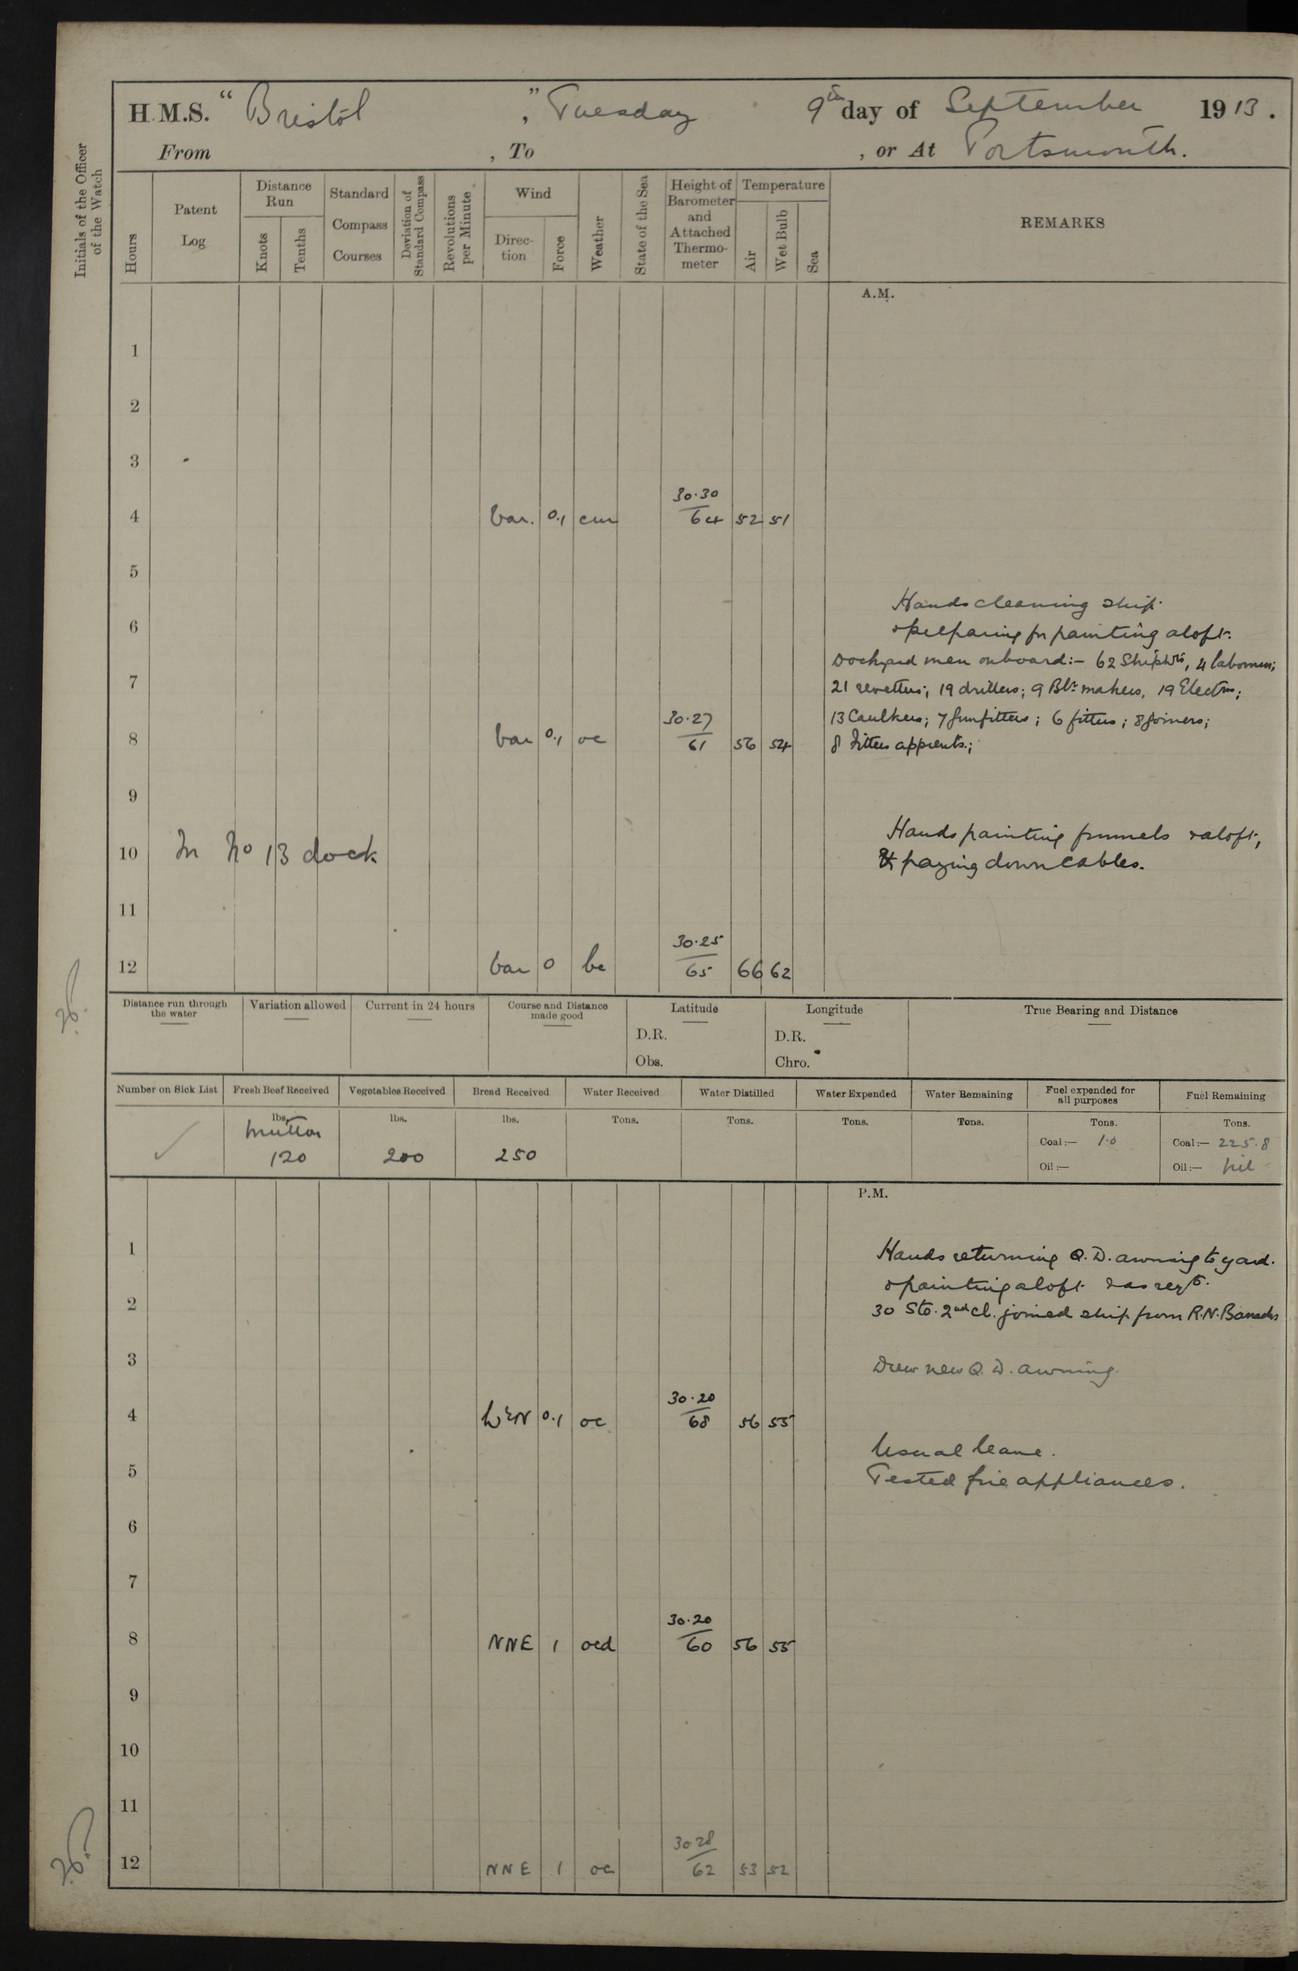 H.M.S. "Bristol", Tuesday 9th day of September 1913.
From , To , or At Portsmouth.
Initials of the Officer of the Watch
Hours
Patent Log
Distance Run
Knots
Tenths
Standard Compass Courses
Deviation of Standard Compass
Revolutions per Minute
Wind
Direction
Force
Weather
State of the Sea
Height of Barometer and Attached Thermometer
Temperature
Air
Wet Bulb
Sea
REMARKS
A.M.
1
2
3
4 Var. 0.1 cm 30.30 / 64 52 51
5
Hands cleaning ship
6 & preparing for painting aloft.
Dockyard men onboard:- 62 Shipwts, 4 labourers;
7 21 revetters; 19 drillers; 9 Blr makers, 19 Electns;
13 Caulkers; 7 Gunfitters; 6 fitters; 8 joiners;
8 Var 0.1 oc 30.27 / 61 56 54 8 fitters apprents.;
9
Hands painting funnels & aloft,
10 In No 13 dock & paying down cables.
11
12 Var 0 bc 30.25 / 65 66 62
Distance run through the water
Variation allowed
Current in 24 hours
Course and Distance made good
Latitude
D.R.
Obs.
Longitude
D.R.
Chro.
True Bearing and Distance
Number on Sick List
Fresh Beef Received
Vegetables Received
Bread Received
Water Received
Water Distilled
Water Expended
Water Remaining
Fuel expended for all purposes
Fuel Remaining
lbs. mutton 120
lbs. 200
lbs. 250
Tons.
Tons.
Tons.
Tons.
Tons.
Coal:— 1.0
Oil:—
Tons.
Coal:— 225.8
Oil:— nil
P.M.
1 Hands returning Q.D. awning to yard.
& painting aloft & as reqd.
2 30 Sto. 2nd cl. joined ship from R.N. Barracks
3 Drew new Q.D. awning.
4 WN 0.1 oc 30.20 / 68 56 55
Usual leave.
5 Tested fire appliances.
6
7
8 NNE 1 ocd 30.20 / 60 56 55
9
10
11
12 NNE 1 oc 30 28 / 62 53 52